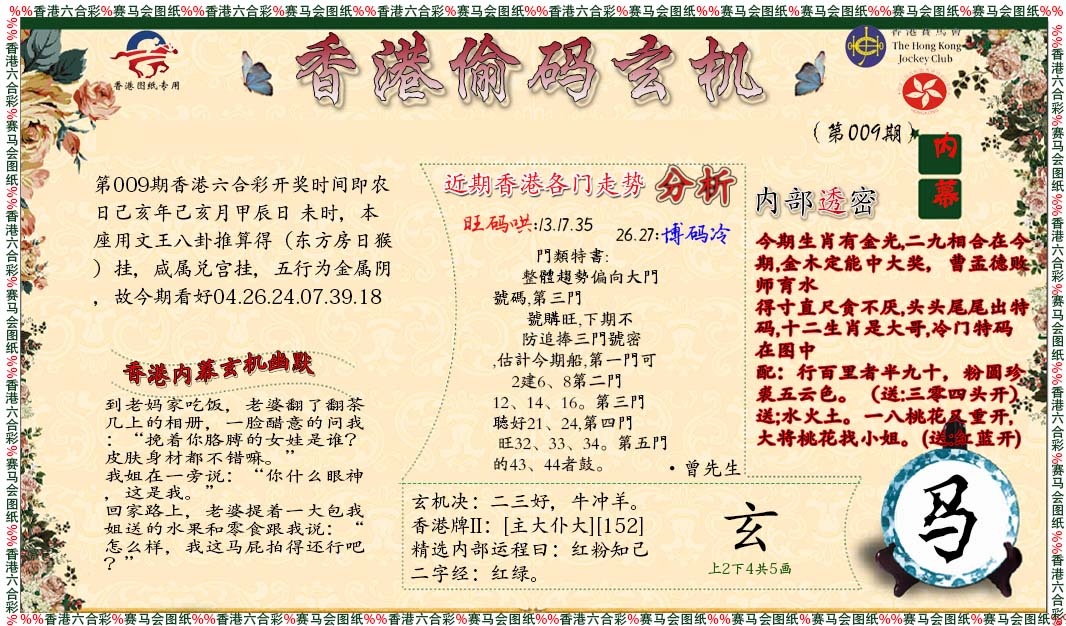 %%香港六合彩%赛马会图纸%%香港六合彩%赛马会图纸%%香港六合彩%赛马会图纸%%香港六合彩%赛马会图纸%%香港六合彩%赛马会图纸%%
香港图纸专用
香港偷码玄机
香港賽馬會
The Hong Kong
Jockey Club
(第009期)
内幕
第009期香港六合彩开奖时间即农
日己亥年己亥月甲辰日 未时，本
座用文王八卦推算得（东方房日猴
）挂，咸属兑宫挂，五行为金属阴
，故今期看好04.26.24.07.39.18
香港内幕玄机幽默
到老妈家吃饭，老婆翻了翻茶
几上的相册，一脸醋意的问我
：“挽着你胳膊的女娃是谁？
皮肤身材都不错嘛。”
我姐在一旁说：“你什么眼神
，这是我。”
回家路上，老婆提着一大包我
姐送的水果和零食跟我说：“
怎么样，我这马屁拍得还行吧
？”
近期香港各门走势 分析
旺码哄:13.17.35
26.27:博码冷
門類特書:
整體趨勢偏向大門
號碼,第三門
號購旺,下期不
防追捧三門號密
,估計今期船,第一門可
2建6、8第二門
12、14、16。第三門
聽好21、24,第四門
旺32、33、34。第五門
的43、44者鼓。
·曾先生
内部透密
今期生肖有金光,二九相合在今
期,金木定能中大奖，曹孟德败
师育水
得寸直尺贪不厌,头头尾尾出特
码,十二生肖是大哥,冷门特码
在图中
配：行百里者半九十，粉圆珍
裘五云色。（送:三零四头开）
送;水火土。一八桃花又重开，
大将桃花找小姐。(送:红蓝开)
玄机决：二三好，牛冲羊。
香港牌II：[主大仆大][152]
精选内部运程曰：红粉知己
二字经：红绿。
玄
上2下4共5画
马
%%香港六合彩%赛马会图纸%%香港六合彩%赛马会图纸%%香港六合彩%赛马会图纸%%香港六合彩%赛马会图纸%%香港六合彩%赛马会图纸%%